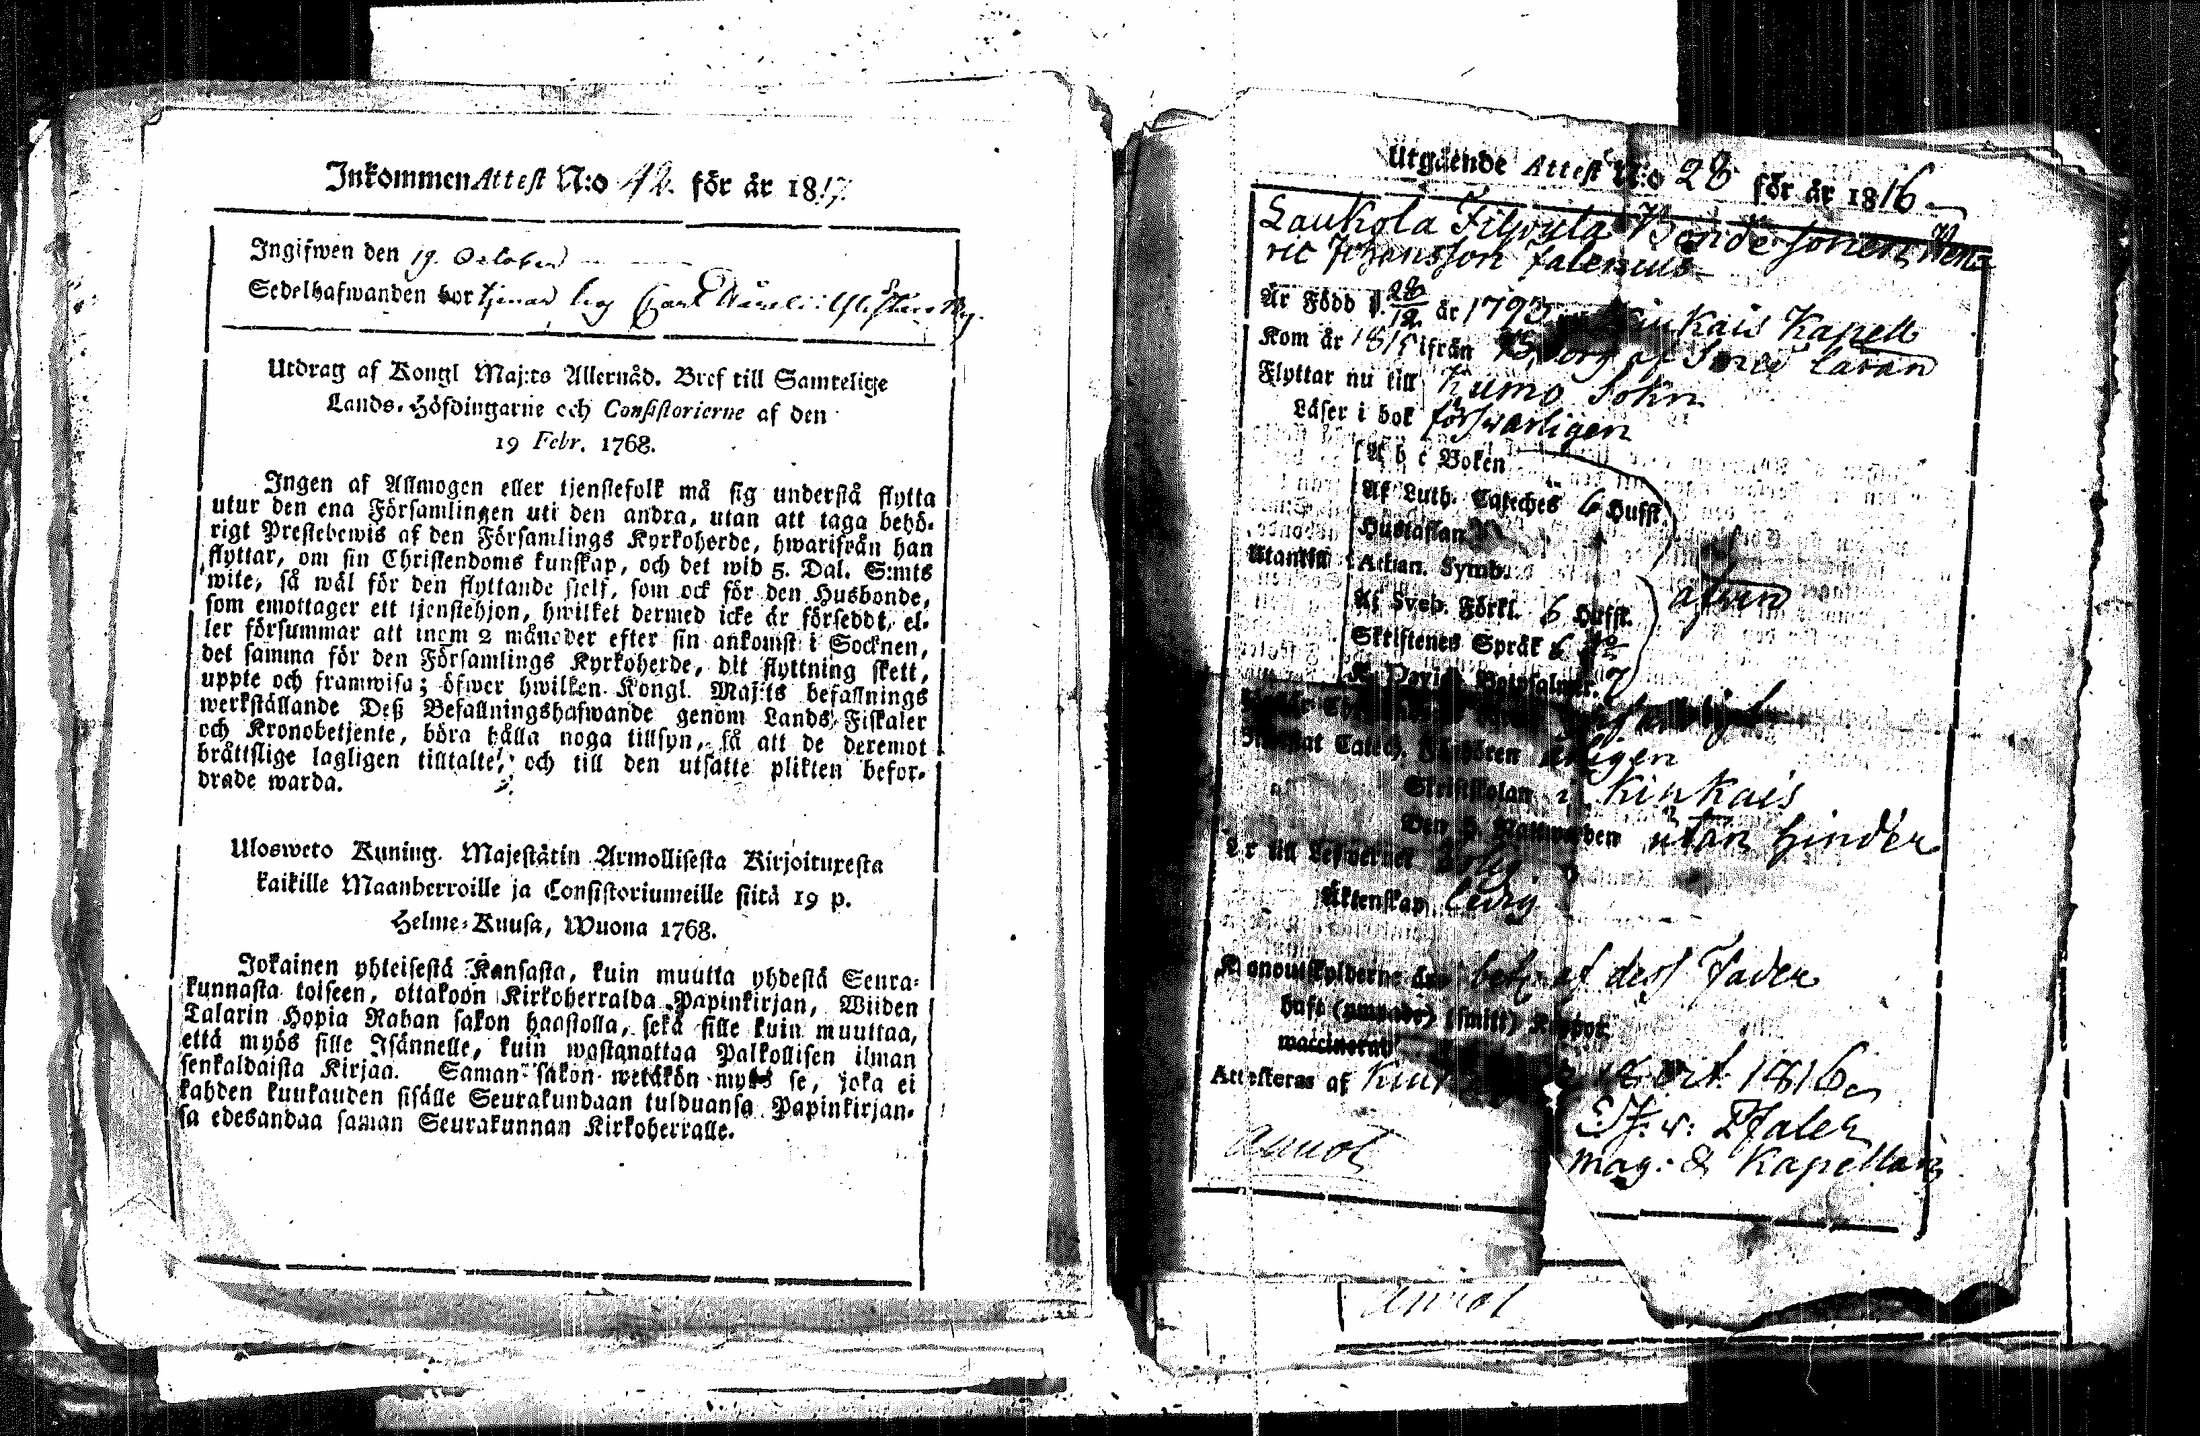 Inkommen Attest N:o 42. för år 1817.
Ingifwen den 19. October
Sedelhafwanden bor tjenar hos
Utdrag af Kongl Maj:ts Allernåd. Bref till Samtelige
Lands-Höfdingarne och Consistorierne af den
19 Febr. 1768.
Ingen af Allmogen eller tjenstefolk må sig understå flytta
utur den ena Församlingen uti den andra, utan att taga behö-
rigt Prestebewis af den Församlings Kyrkoherde, hwarifrån han
flyttar, om sin Christendoms kunskap, och det wid 5. Dal. S:mts
wite, så wäl för den flyttande sielf, som ock för den Husbonde,
som emottager ett tjenstehjon, hwilket dermed icke är försedt, el-
ler försummar att inom 2 månader efter sin ankomst i Socknen,
det samma för den Församlings Kyrkoherde, dit flyttning skett,
uppte och framwisa; öfwer hwilken Kongl. Maj:ts befallnings
werkställande Deß Befallningshafwande genom Lands-Fiskaler
och Kronobetjente, böra hålla noga tillsyn, så att de deremot
bråttslige lagligen tilltalte, och till den utsatte plikten befor-
drade warda.
Ulosweto Kuning. Majestätin Armollisesta Kirjoituxesta
kaikille Maanherroille ja Consistoriumeille siitä 19 p.
Helme-Kuusa, Wuona 1768.
Jokainen yhteisestä Kansasta, kuin muutta yhdestä Seura-
kunnasta toiseen, ottakoon Kirkoherralda Papinkirjan, Wiiden
Talarin Hopia Rahan sakon haastolla, sekä sille kuin muuttaa,
että myös sille Isännelle, kuin wastanottaa Palkollisen ilman
senkaldaista Kirjaa. Saman sakon wetäkön myös se, joka ei
kahden kuukauden sisälle Seurakundaan tulduansa Papinkirjan-
sa edesandaa saman Seurakunnan Kirkoherralle.
Utgående Attest N:o 28 för år 1816
Laukola Bondesonen Hen-
ric Johansson Falenius
Är Född d. 28/12 år 1793 Kiukais Kapell
Kom år ifrån
Flyttar nu till Kumo Sokn
Läser i bok förswarligen
A b c Boken
Af Luth. Cateches 6 Hufst.
Hustaflan
Utantill Athan. Symb.
Af Sveb. Förkl. 6 Hufst. äfven
Skriftenes Språk 6
K. Davids Botpsalmer. 7
Catech. Förhören årligen
Skriftskolan i Kiukais
Den H. Nattwarden utan hinder
Är till Lefwernet ärlig
Äktenskap ledig
Kronoutskylderne äro bet. af dess Fader
haft (ympade) (smitt) Koppor
waccinerad
Attesteras af 1816
mag: & Kapellan